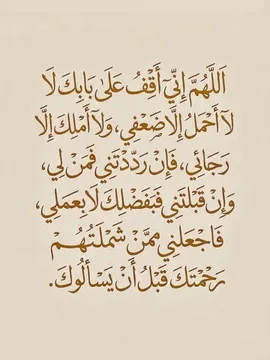 اَللَّهُمَّ إِنِّي أَقِفُ عَلَى بَابِكَ لَا
لَآ أَحْمِلُ إِلَّا ضَعْفِي، وَلَآ أَمْلِكُ إِلَّا
رَجَائِي، فَإِنْ رَدَدْتَنِي فَمَنْ لِي،
وَإِنْ قَبِلْتَنِي فَبِفَضْلِكَ لَا بِعَمَلِي،
فَاجْعَلْنِي مِمَّنْ شَمِلَتْهُمْ
رَحْمَتُكَ قَبْلَ أَنْ يَسْأَلُوكَ.